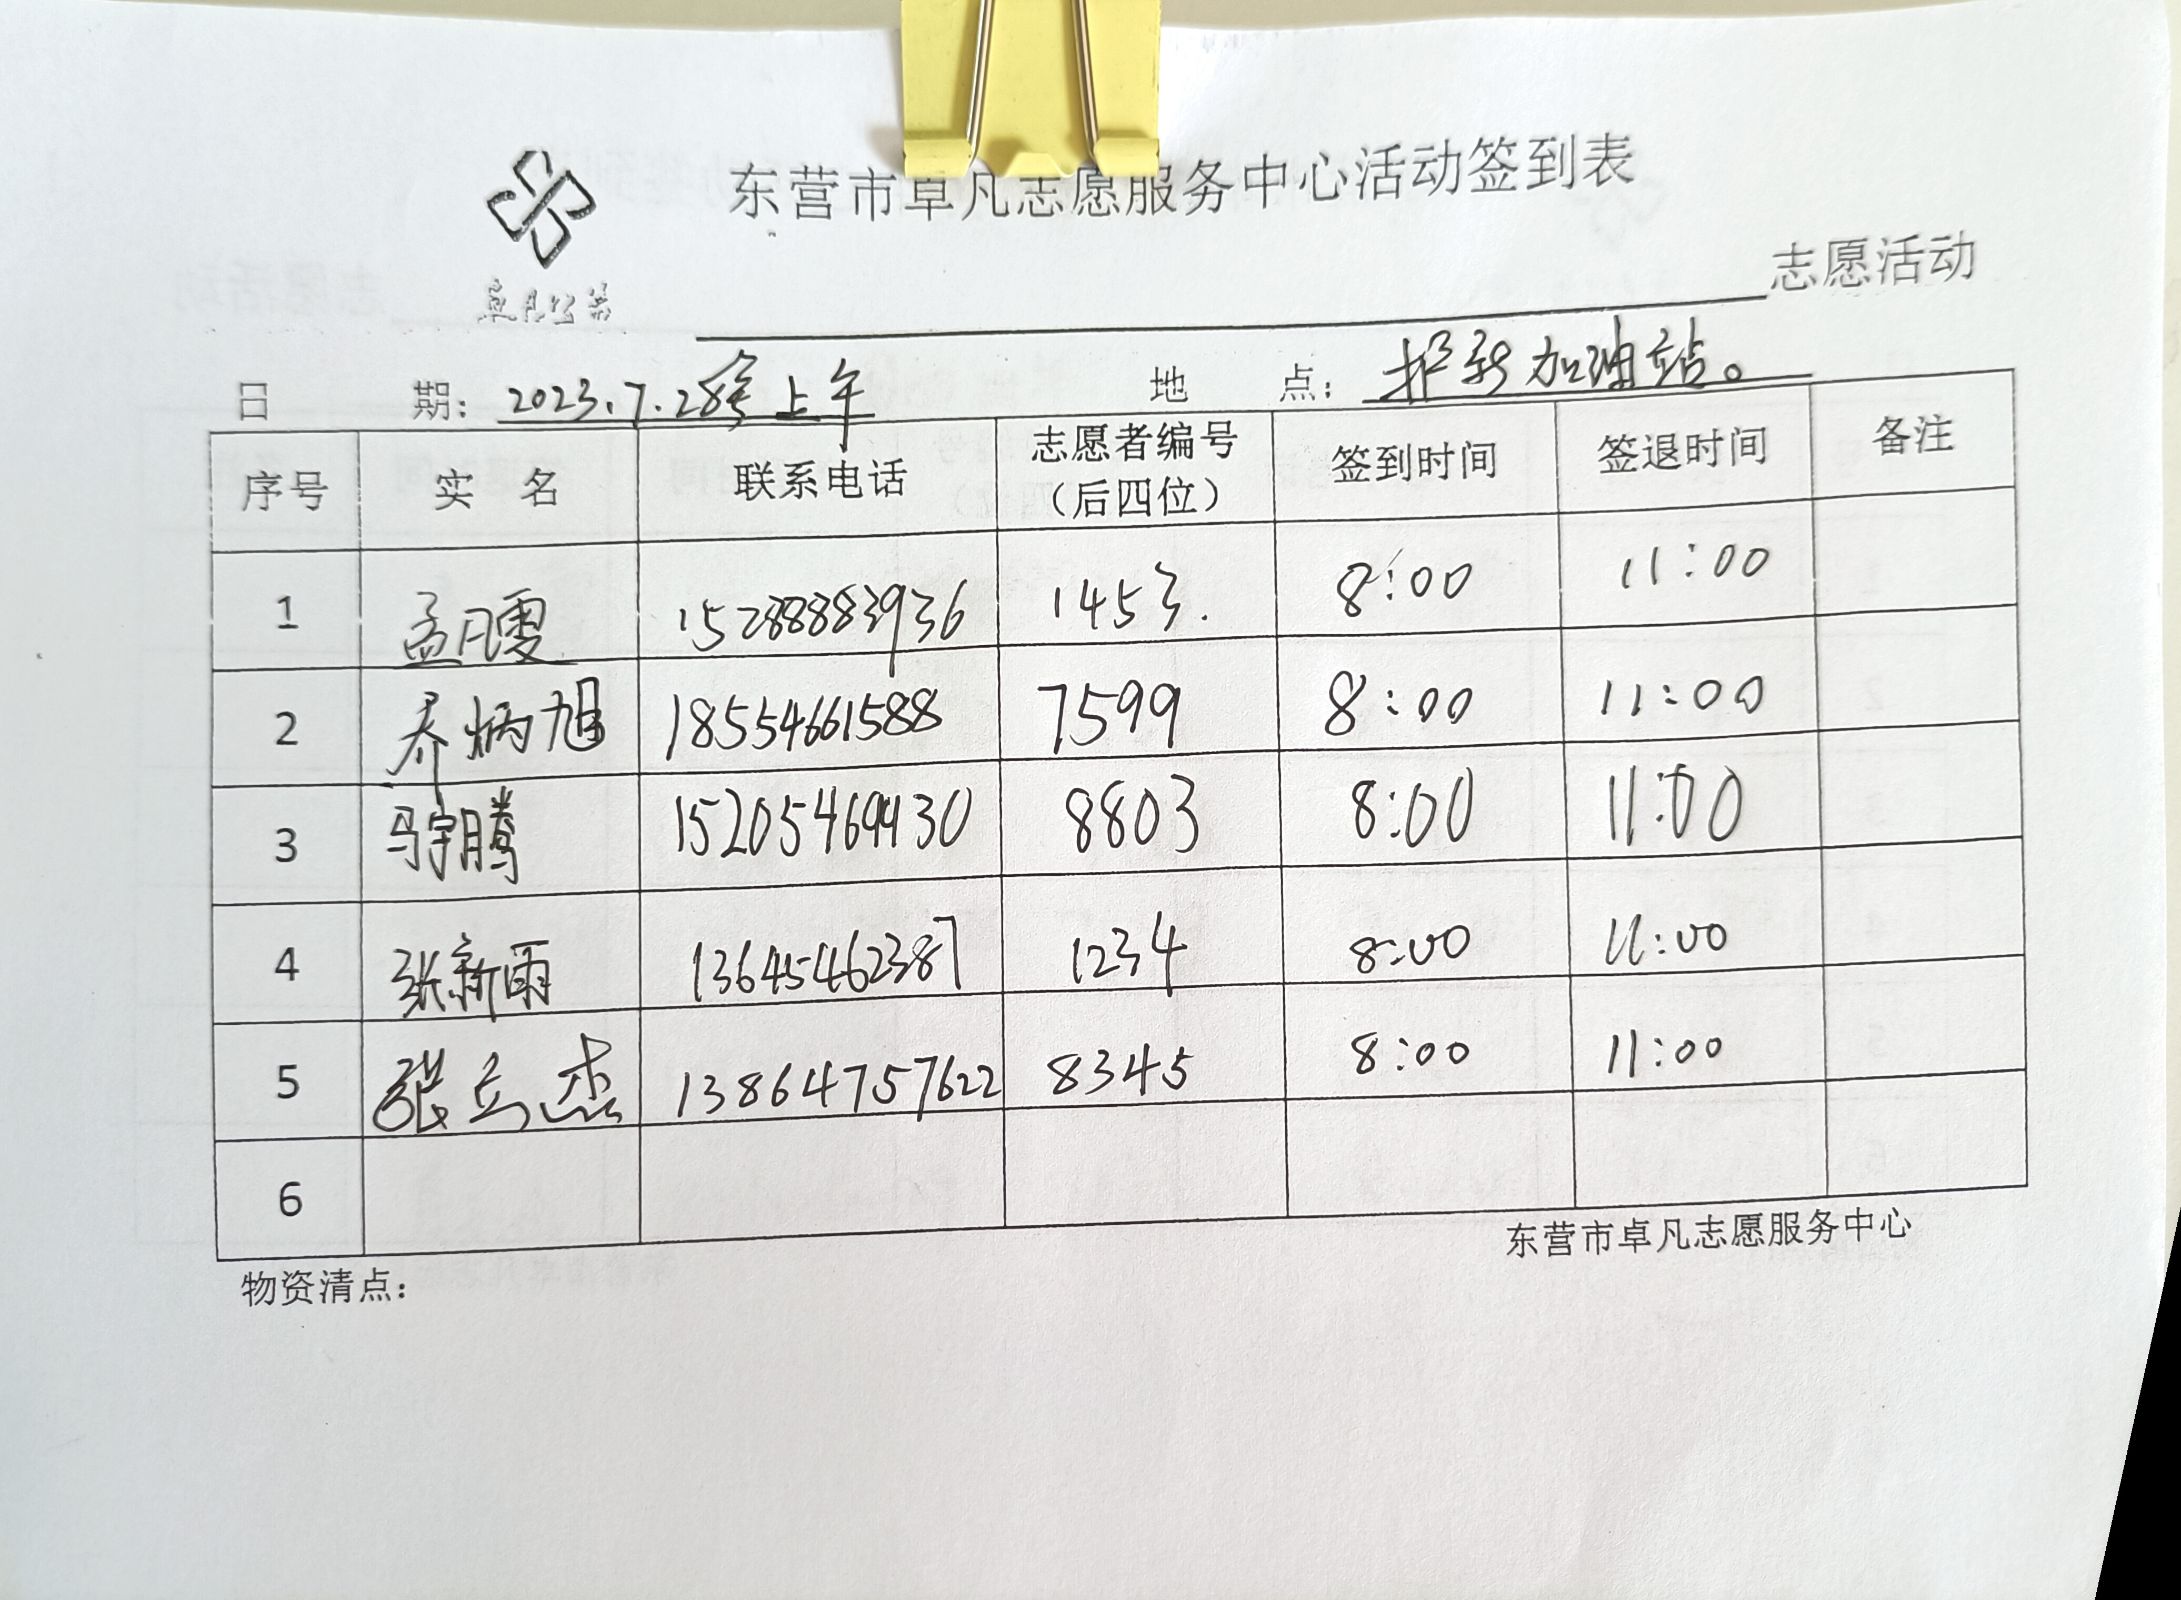 东营市卓凡志愿服务中心活动签到表
卓凡公益
志愿活动
日 期：2023.7.28 上午 地 点：护新加油站。
序号 实 名 联系电话 志愿者编号（后四位） 签到时间 签退时间 备注
1 孟凡雯 15288883936 1453. 8:00 11:00
2 乔炳旭 18554661588 7599 8:00 11:00
3 马宇腾 15205469430 8803 8:00 11:00
4 张新雨 13645462387 1234 8:00 11:00
5 张立杰 13864757622 8345 8:00 11:00
6
东营市卓凡志愿服务中心
物资清点：